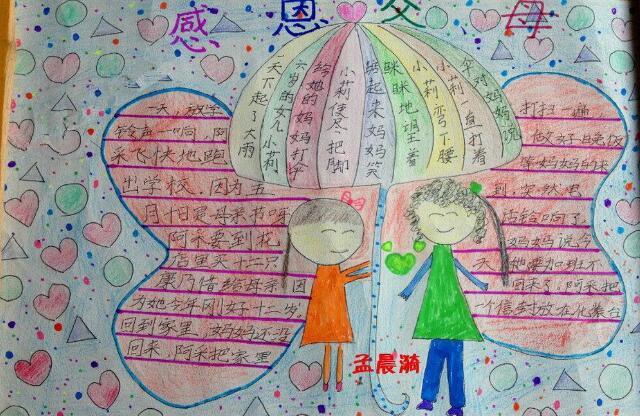 感恩父母
天下起了大雨
六岁的女儿小莉
给她的妈妈打伞
小莉使尽把脚
起来妈妈笑
眯眯地望着
小莉弯下腰
小莉一直打着
伞对妈妈说
一天 放学
铃声一响,阿
采飞快地跑
出学校,因为五
月十日是母亲节呀
阿采要到花
店里买十二只
康乃馨给母亲,因
为她今年刚好十二岁,
回到家里,妈妈还没
回来,阿采把家里
打扫一遍
做好晚饭
等妈妈
到,突然电
话铃响了
妈妈说今
天她要加班不
回来了,阿采把
一个信封放在化装台
孟晨漪